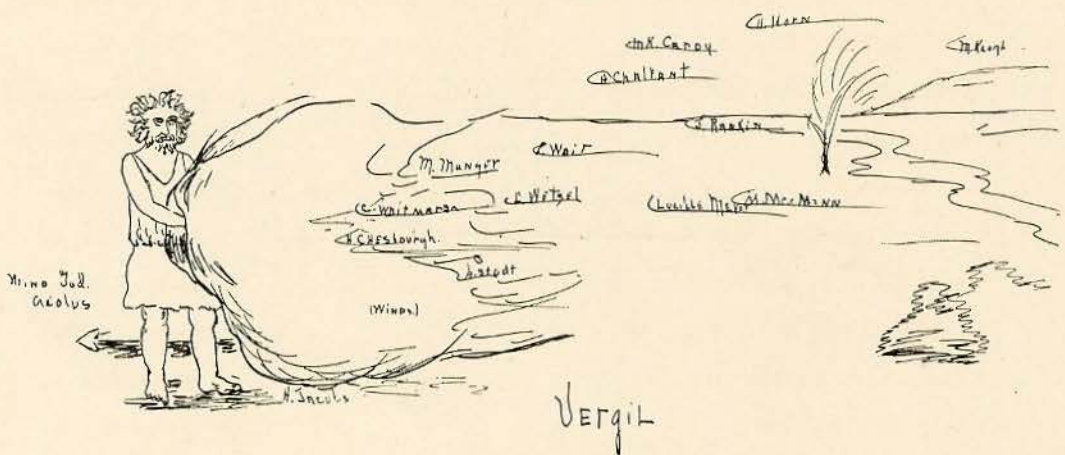 H. Horn
M.K. Canby
M. Keogh
H Chalfant
J. Rankin
L Wair
M. Munger
L. Wetzel
C. Whitmarsh
Lucille Meyer
M. McMinn
H Chesbourgh.
Stedt
Wind God.
Aeolus
(Winds)
H. Jacobs
Vergil